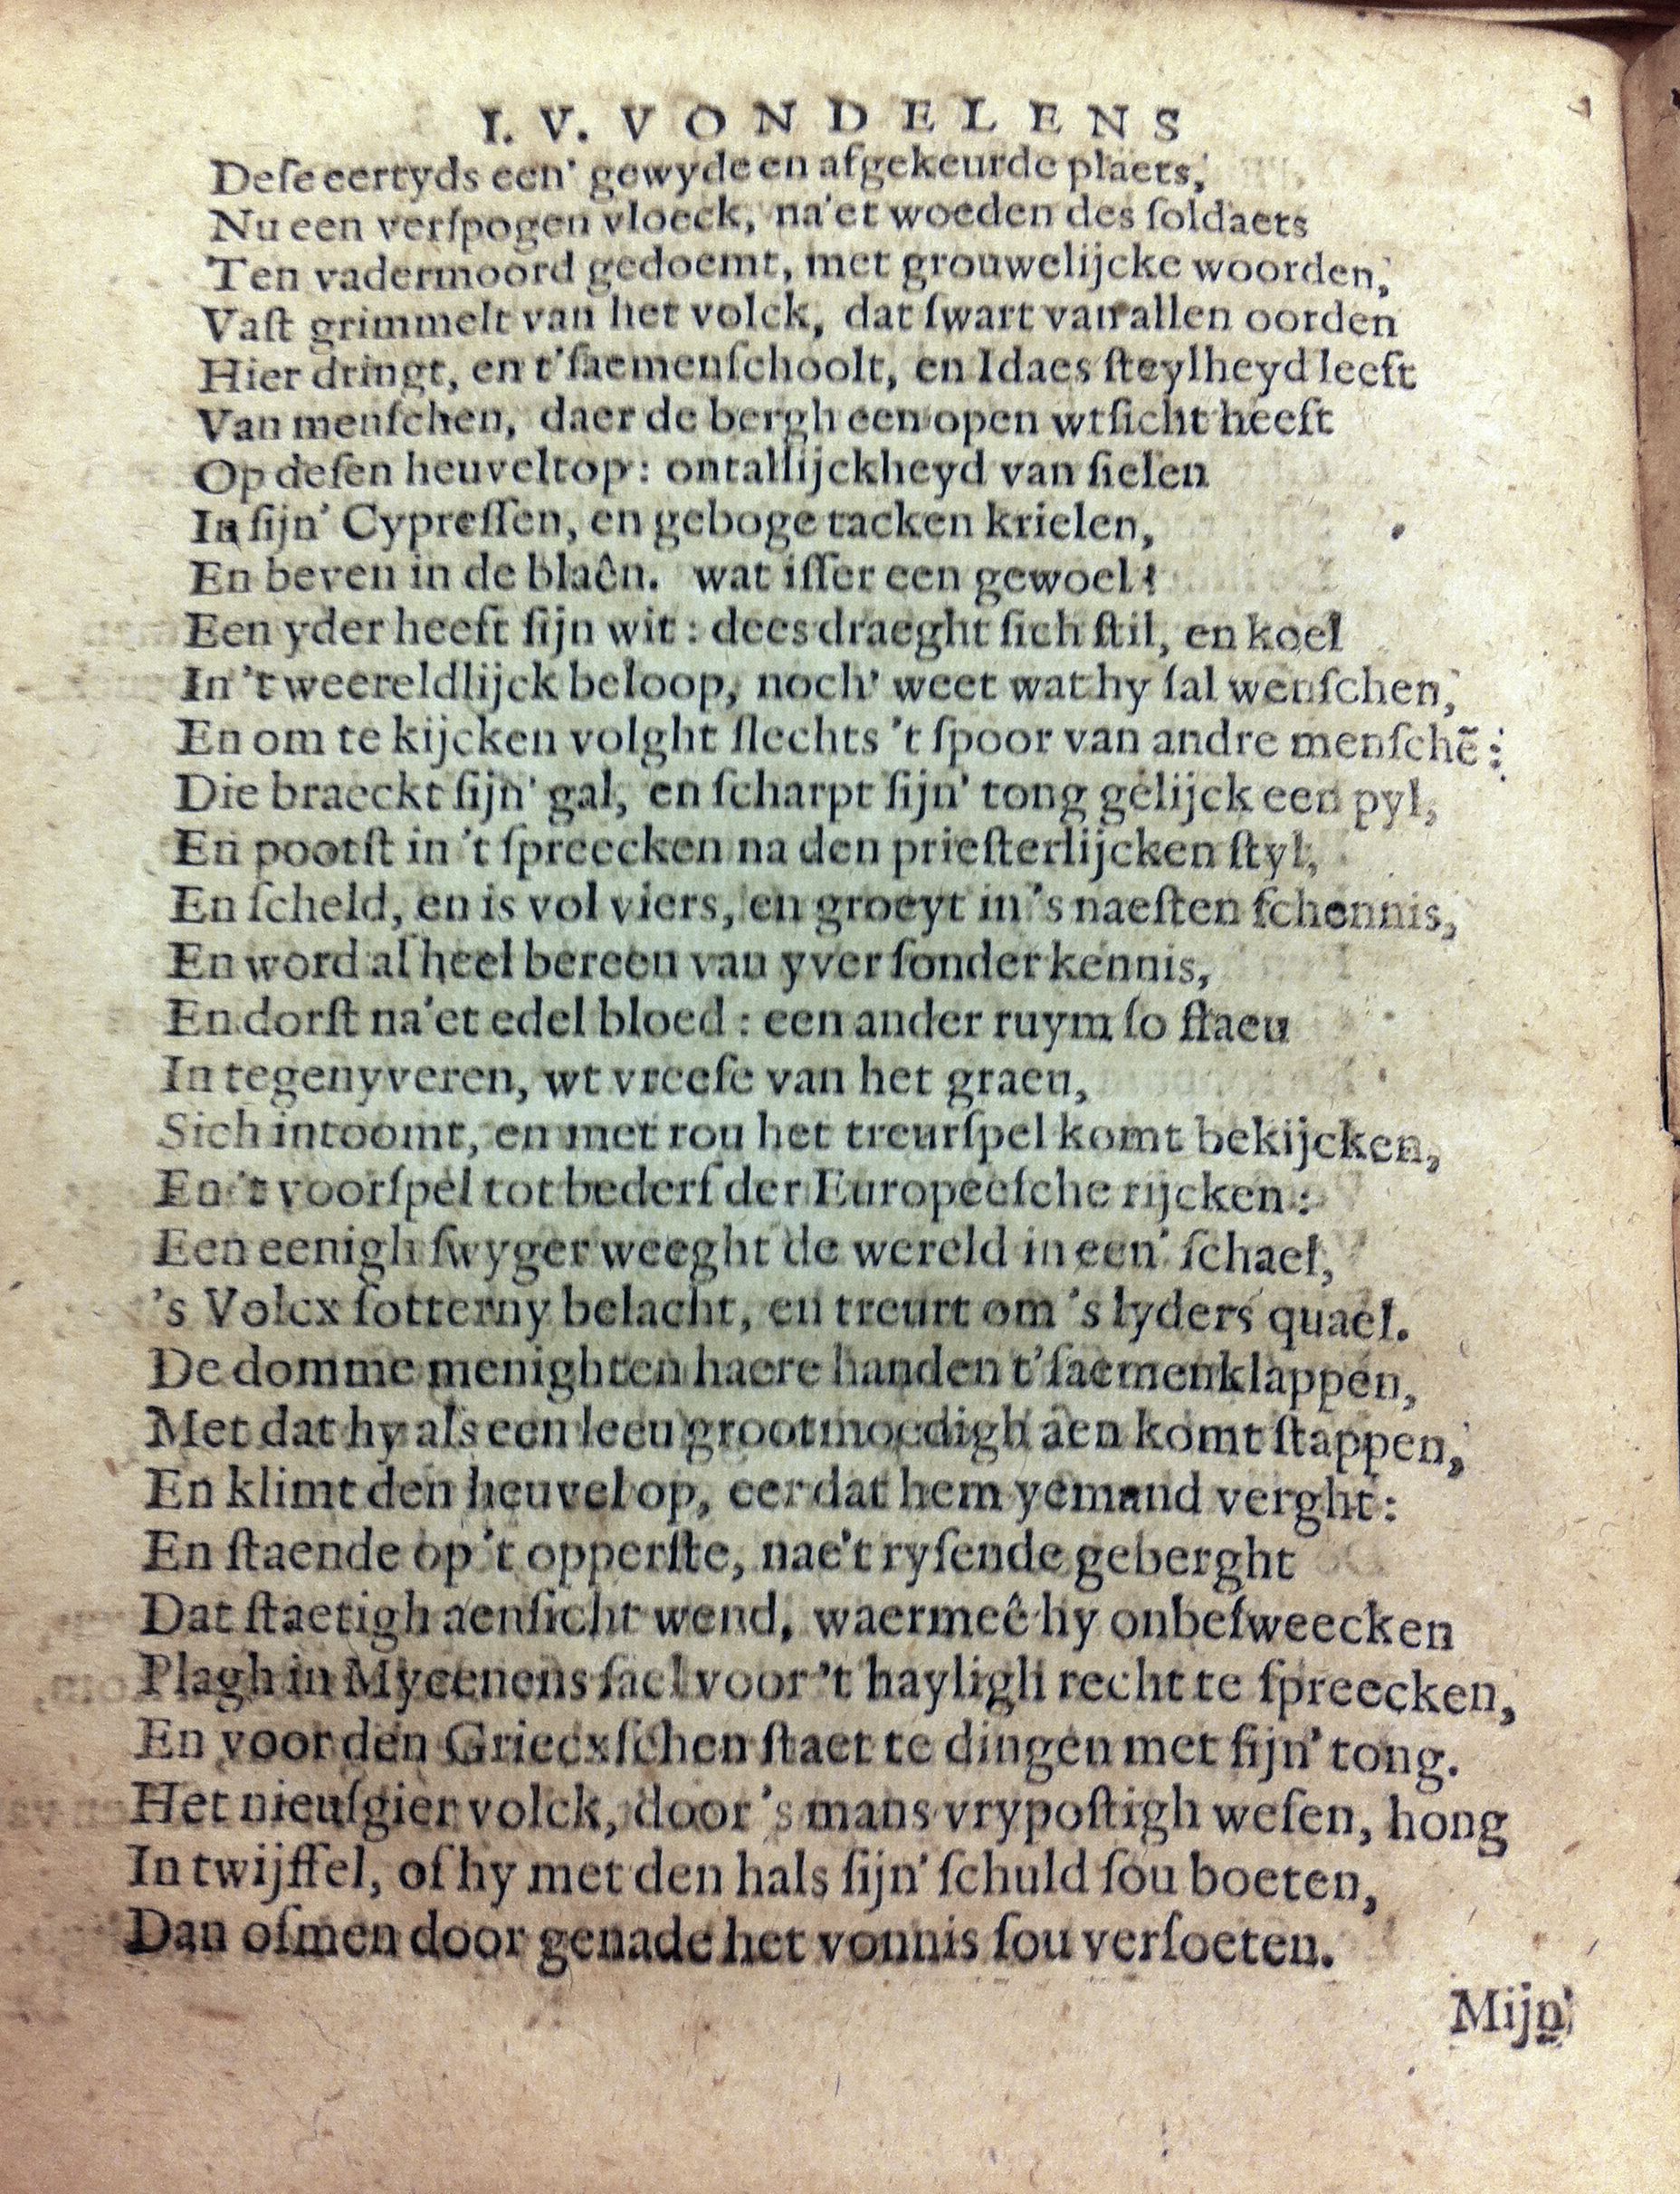 I. V. VONDELENS
Deſe eertyds een' gewyde en afgekeurde plaets,
Nu een verſpogen vloeck, na'et woeden des ſoldaets
Ten vadermoord gedoemt, met grouwelijcke woorden,
Vaſt grimmelt van het volck, dat ſwart van allen oorden
Hier dringt, en t'ſaemenſchoolt, en Idaes ſteylheyd leeft
Van menſchen, daer de bergh een open wtſicht heeft
Op deſen heuveltop: ontallijckheyd van ſielen
In ſijn' Cypreſſen, en geboge tacken krielen,
En beven in de blaên. wat iſſer een gewoel!
Een yder heeft ſijn wit: dees draeght ſich ſtil, en koel
In 't weereldlijck beloop, noch' weet wat hy ſal wenſchen,
En om te kijcken volght ſlechts 't ſpoor van andre menſchē:
Die braeckt ſijn' gal, en ſcharpt ſijn' tong gelijck een pyl,
En pootſt in 't ſpreecken na den prieſterlijcken ſtyl,
En ſcheld, en is vol viers, en groeyt in 's naeſten ſchennis,
En word al heel bereen van yver ſonder kennis,
En dorſt na'et edel bloed: een ander ruym ſo ſtaeu
In tegenyveren, wt vreeſe van het graeu,
Sich intoomt, en met rou het treurſpel komt bekijcken,
En 't voorſpel tot bederf der Europeeſche rijcken:
Een eenigh ſwyger weeght de wereld in een' ſchael,
's Volcx ſotterny belacht, en treurt om 's lyders quael.
De domme menighten haere handen t'ſaemenklappen,
Met dat hy als een leeu grootmoedigh aen komt ſtappen,
En klimt den heuvel op, eer dat hem yemand verght:
En ſtaende op 't opperſte, nae't ryſende geberght
Dat ſtaetigh aenſicht wend, waermeê hy onbeſweecken
Plagh in Myceenens ſael voor 't hayligh recht te ſpreecken,
En voor den Griecxſchen ſtaet te dingen met ſijn' tong.
Het nieuſgier volck, door 's mans vrypoſtigh weſen, hong
In twijffel, of hy met den hals ſijn' ſchuld ſou boeten,
Dan ofmen door genade het vonnis ſou verſoeten.
Mijn'